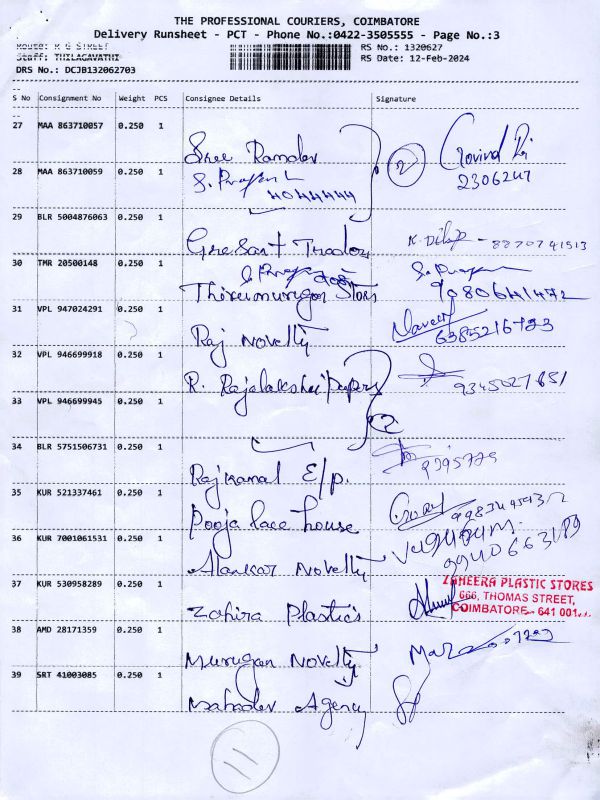 THE PROFESSIONAL COURIERS, COIMBATORE
Delivery Runsheet - PCT - Phone No.:0422-3505555 - Page No.:3
Route: K G STREET
RS No.: 1320627
Staff: THILAGAVATHI
RS Date: 12-Feb-2024
DRS No.: DCJB132062703
S No Consignment No Weight PCS Consignee Details Signature
27 MAA 863710057 0.250 1
Sree Ramdev
2
Govind
2306247
28 MAA 863710059 0.250 1
29 BLR 5004876063 0.250 1
Gresant Trador
K. Dilip - 8870741513
30 TMR 20500148 0.250 1
Thirumurgan Stors
31 VPL 947024291 0.250 1
Raj Novelty
Naveen
6385216723
32 VPL 946699918 0.250 1
R. Rajalakshmi papers
9345027651
33 VPL 946699945 0.250 1
2
34 BLR 5751506731 0.250 1
Rajkamal E/p.
35 KUR 521337461 0.250 1
Pooja lace house
36 KUR 7001061531 0.250 1
Alankar Novelty
9940663189
37 KUR 530958289 0.250 1
Zahira Plastics
ZAHEERA PLASTIC STORES
666, THOMAS STREET,
COIMBATORE - 641 001.
38 AMD 28171359 0.250 1
Murugan Novelty
39 SRT 41003085 0.250 1
Mahadev Agency